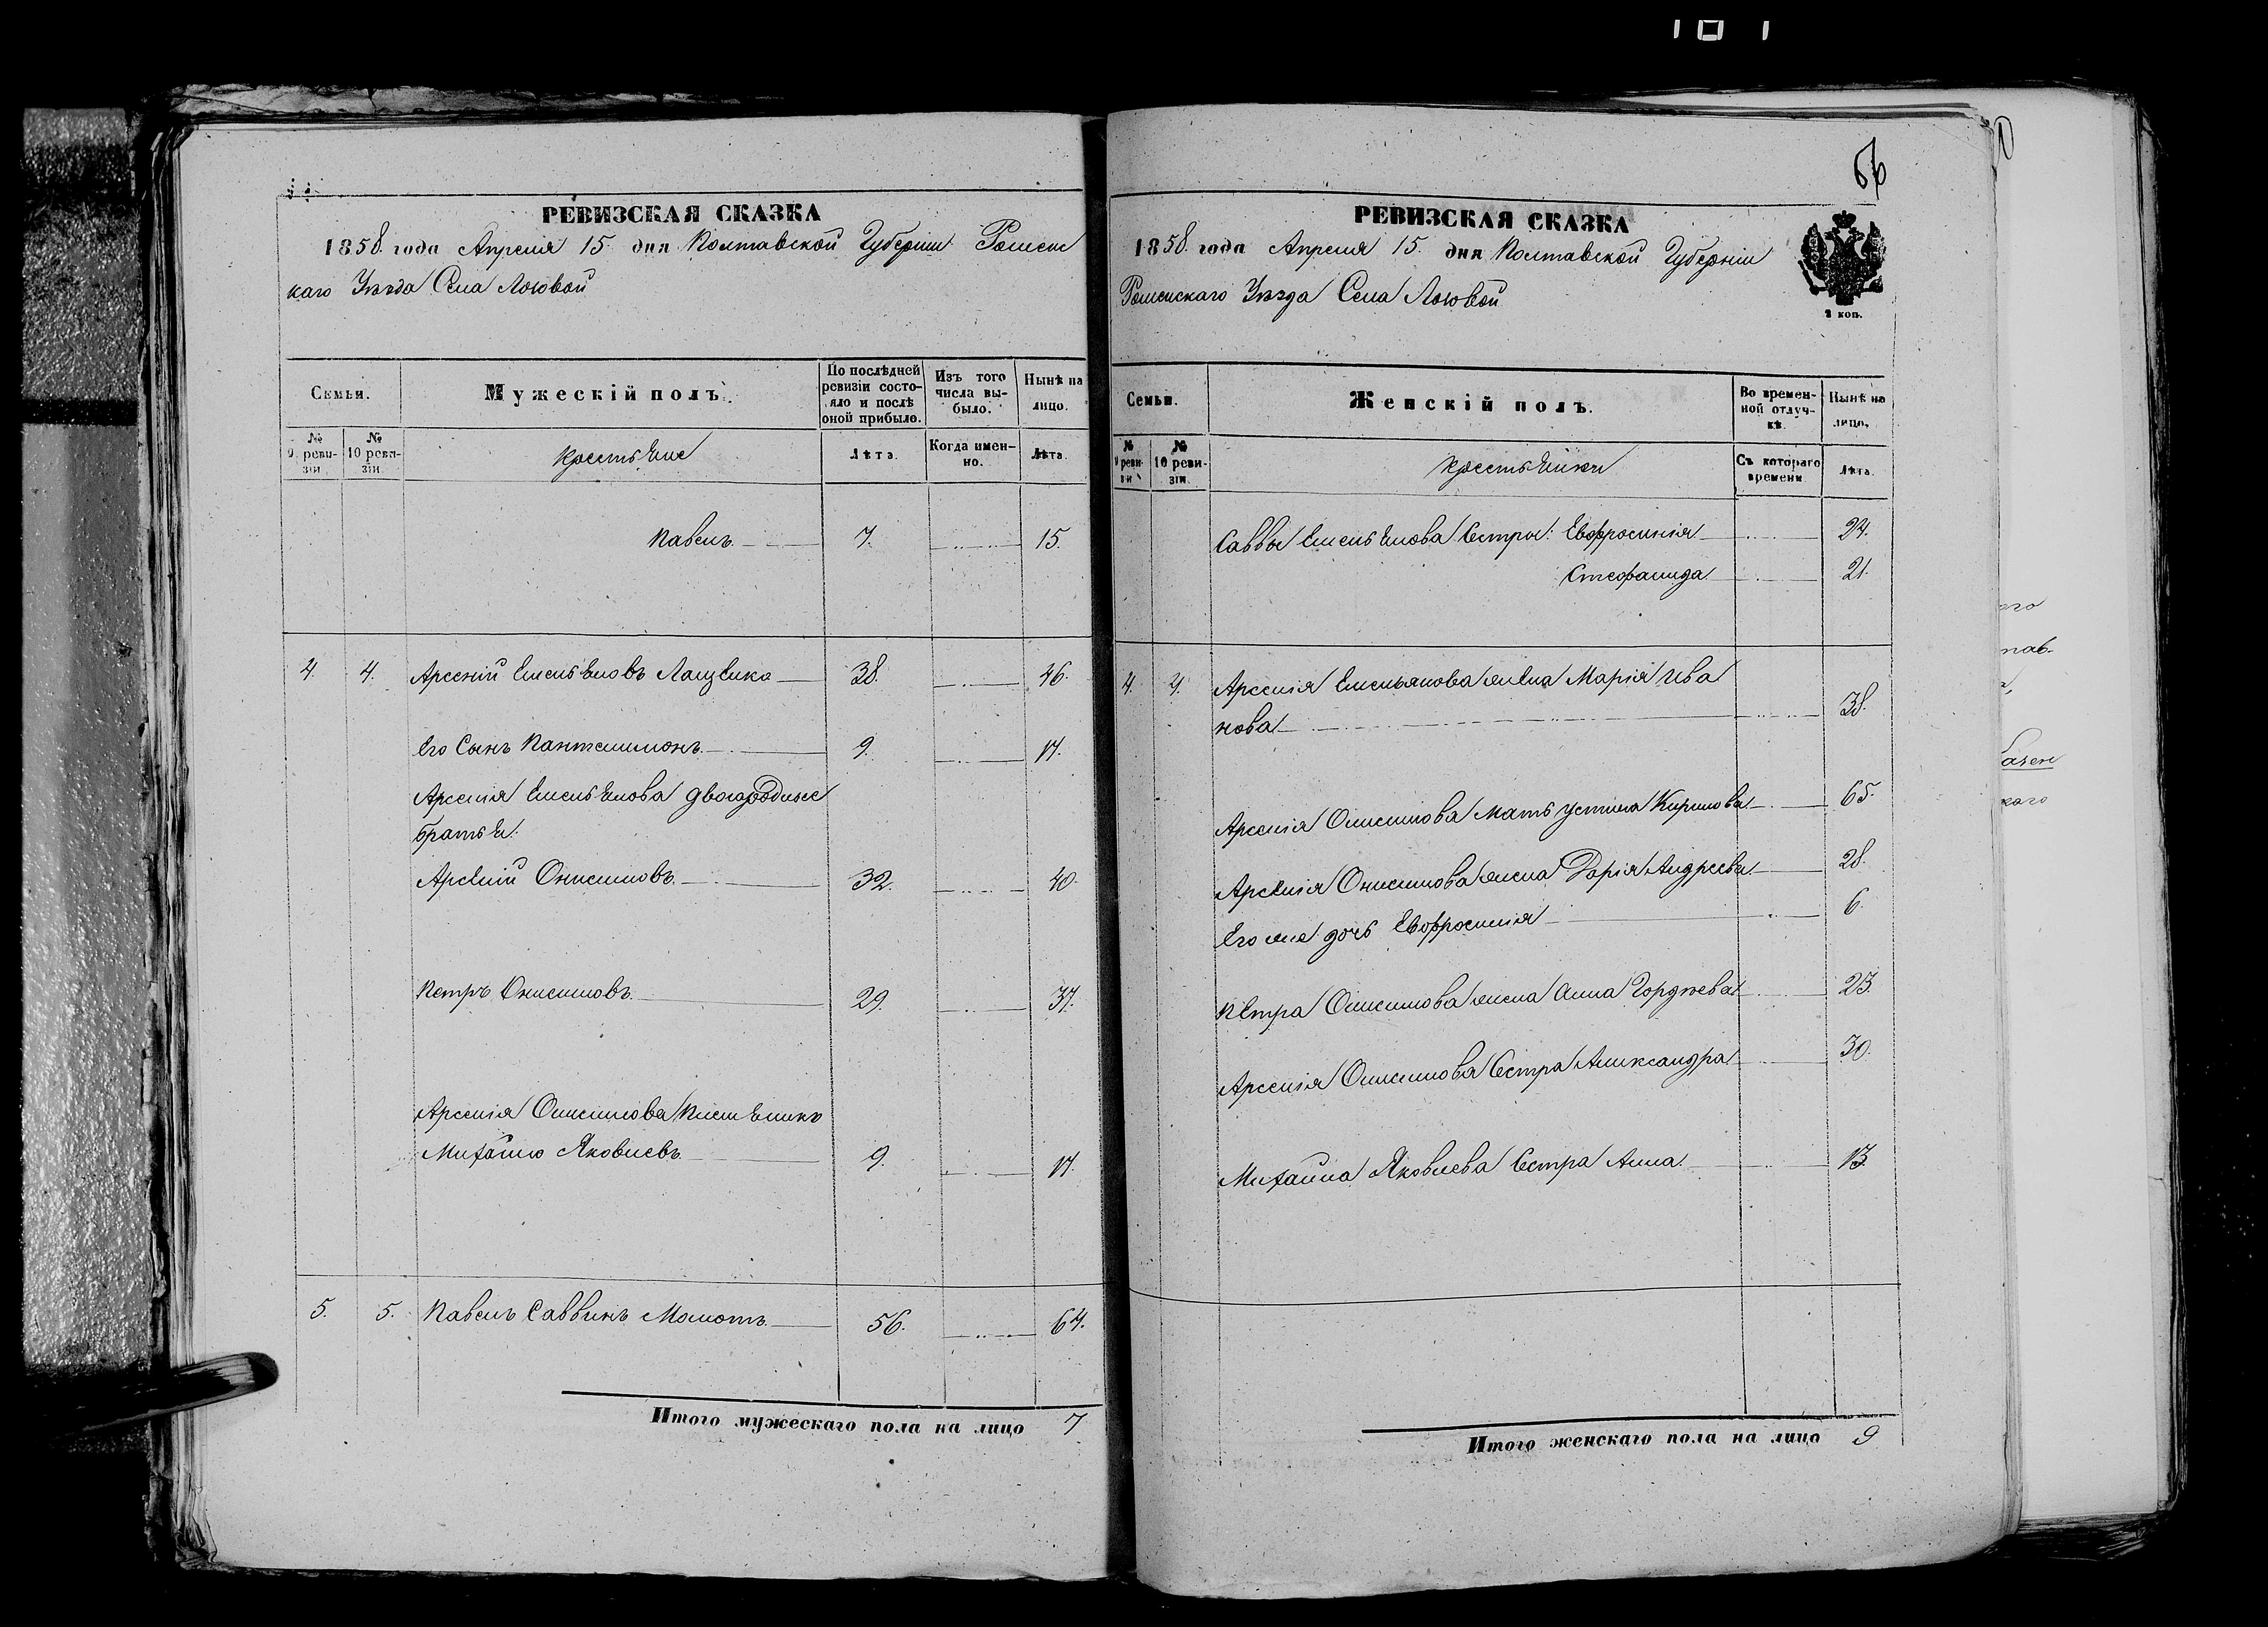 66
РЕВИЗСКАЯ СКАЗКА
1858 года Апреля 15 дня Полтавской Губерніи Роменс
каго Уѣзда Села Логовой
Семьи.
Мужескій полъ.
По послѣдней ревизіи состояло и послѣ оной прибыло.
Изъ того числа выбыло.
Нынѣ на лицо.
№ 9 ревизіи
№ 10 ревизіи.
крестьяне
Лѣта.
Когда именно.
Лѣта.
Павелъ 7. 15.
4. 4. Арсеній Емельяновъ Лащенко 38. 46.
Его Сынъ Пантелимонъ 9. 17.
Арсенія Емельянова двоюродные
братья:
Арсеній Онисимовъ 32. 40.
Петръ Онисимовъ 29. 37.
Арсенія Онисимова племянникъ
Михайло Яковлевъ 9. 17.
5. 5. Павелъ Саввинъ Мамотъ 56. 64.
Итого мужескаго пола на лицо 7
РЕВИЗСКАЯ СКАЗКА
1858 года Апреля 15 дня Полтавской Губерніи
Роменскаго Уѣзда Села Логовой
2 коп.
Семьи.
Женскій полъ.
Во временной отлучкѣ.
Нынѣ на лицо.
№ 9 ревизіи
№ 10 ревизіи.
крестьянки
Съ котораго времени
Лѣта.
Саввы Емельянова Сестры: Евфросинія 24.
Стефанида 21.
4. 4. Арсенія Емельянова жена Марія Ива
нова 38.
Арсенія Онисимова мать Устина Кирилова 65.
Арсенія Онисимова жена Дарія Андреева 28.
Его же дочь Евфросинія 6.
Петра Онисимова жена Анна Гордѣева 23.
Арсенія Онисимова Сестра Александра 30.
Михайла Яковлева Сестра Анна 13.
Итого женскаго пола на лицо 9